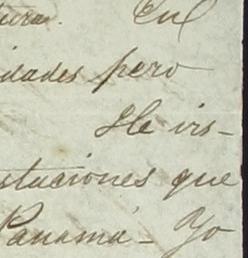 tura. En el
idades pero
He vis-
stuaciones que
Panamá - Yo